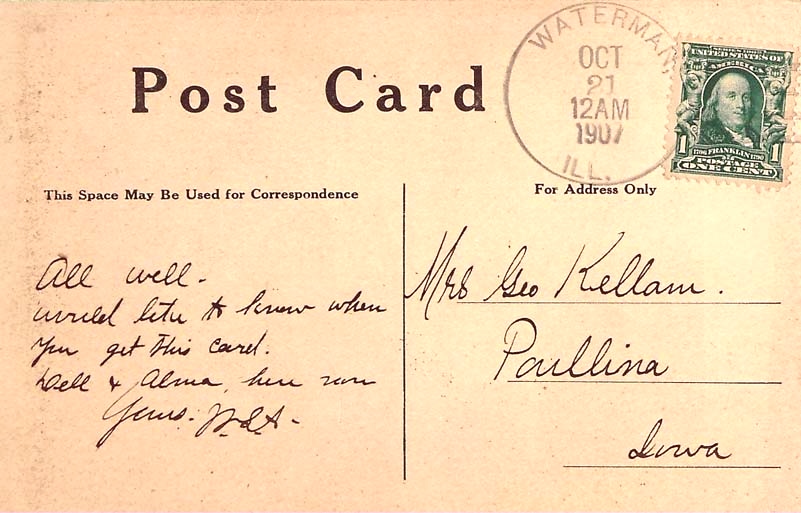 Post Card
WATERMAN,
OCT
21
12AM
1907
ILL.
SERIES 1902
UNITED STATES OF
AMERICA
1706 FRANKLIN 1790
1 1
POSTAGE
ONE CENT
This Space May Be Used for Correspondence
For Address Only
All well.
would like to know when
you get this card.
Dell & Alma here now
Yours.
Mrs Geo Kellam.
Paullina
Iowa